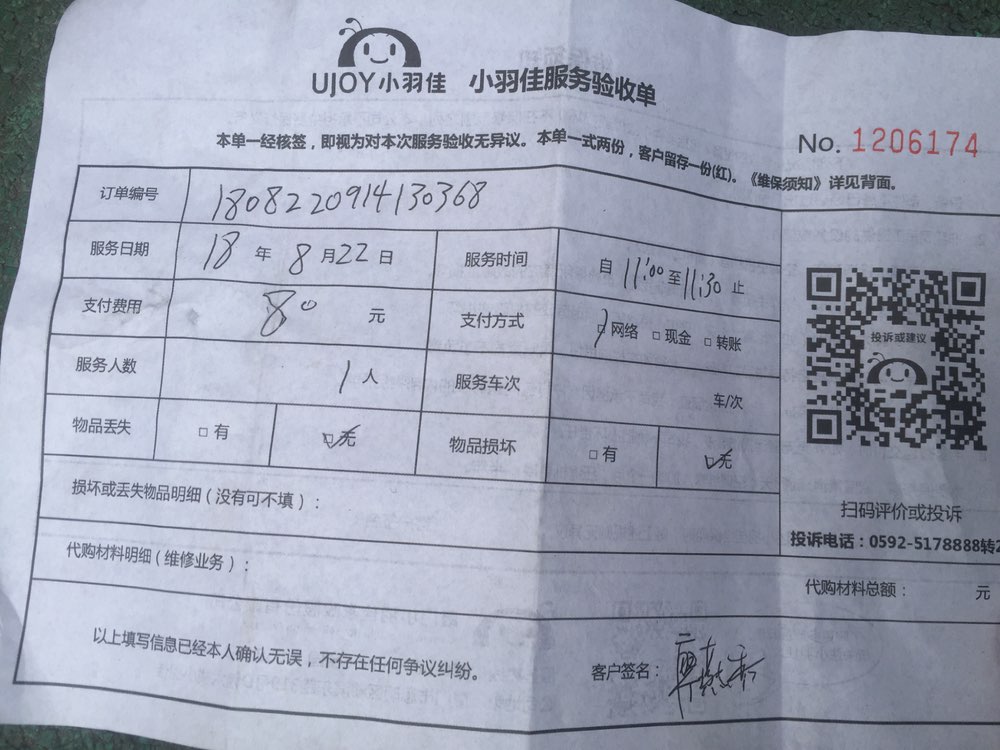 UJOY小羽佳 小羽佳服务验收单
本单一经核签，即视为对本次服务验收无异议。本单一式两份，客户留存一份(红)。《维保须知》详见背面。
No. 1206174
订单编号 1808220914130368
服务日期 18 年 8 月 22 日 服务时间 自 11:00 至 11:30 止
支付费用 80 元 支付方式 □网络 □现金 □转账
服务人数 1 人 服务车次 车/次
物品丢失 □有 □无 物品损坏 □有 □无
损坏或丢失物品明细（没有可不填）：
代购材料明细（维修业务）：
代购材料总额： 元
以上填写信息已经本人确认无误，不存在任何争议纠纷。
客户签名：
投诉或建议
扫码评价或投诉
投诉电话：0592-5178888转2